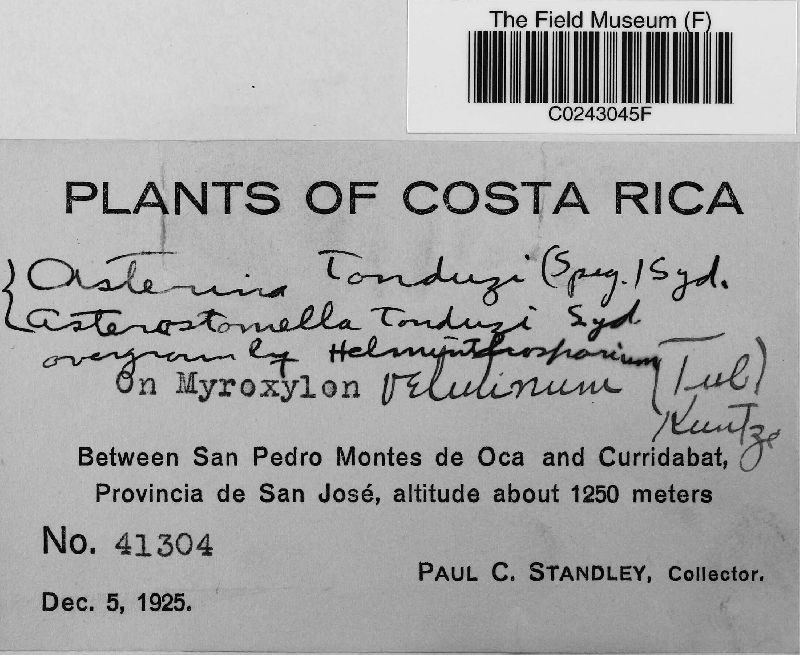 The Field Museum (F)
C0243045F
PLANTS OF COSTA RICA
Asterina Tonduzi (Speg.) Syd.
Asterostomella Tonduzi Syd
overgrown by Helminthosporium
On Myroxylon velutinum (Tul)
Kuntze
Between San Pedro Montes de Oca and Curridabat,
Provincia de San José, altitude about 1250 meters
No. 41304
PAUL C. STANDLEY, Collector.
Dec. 5, 1925.